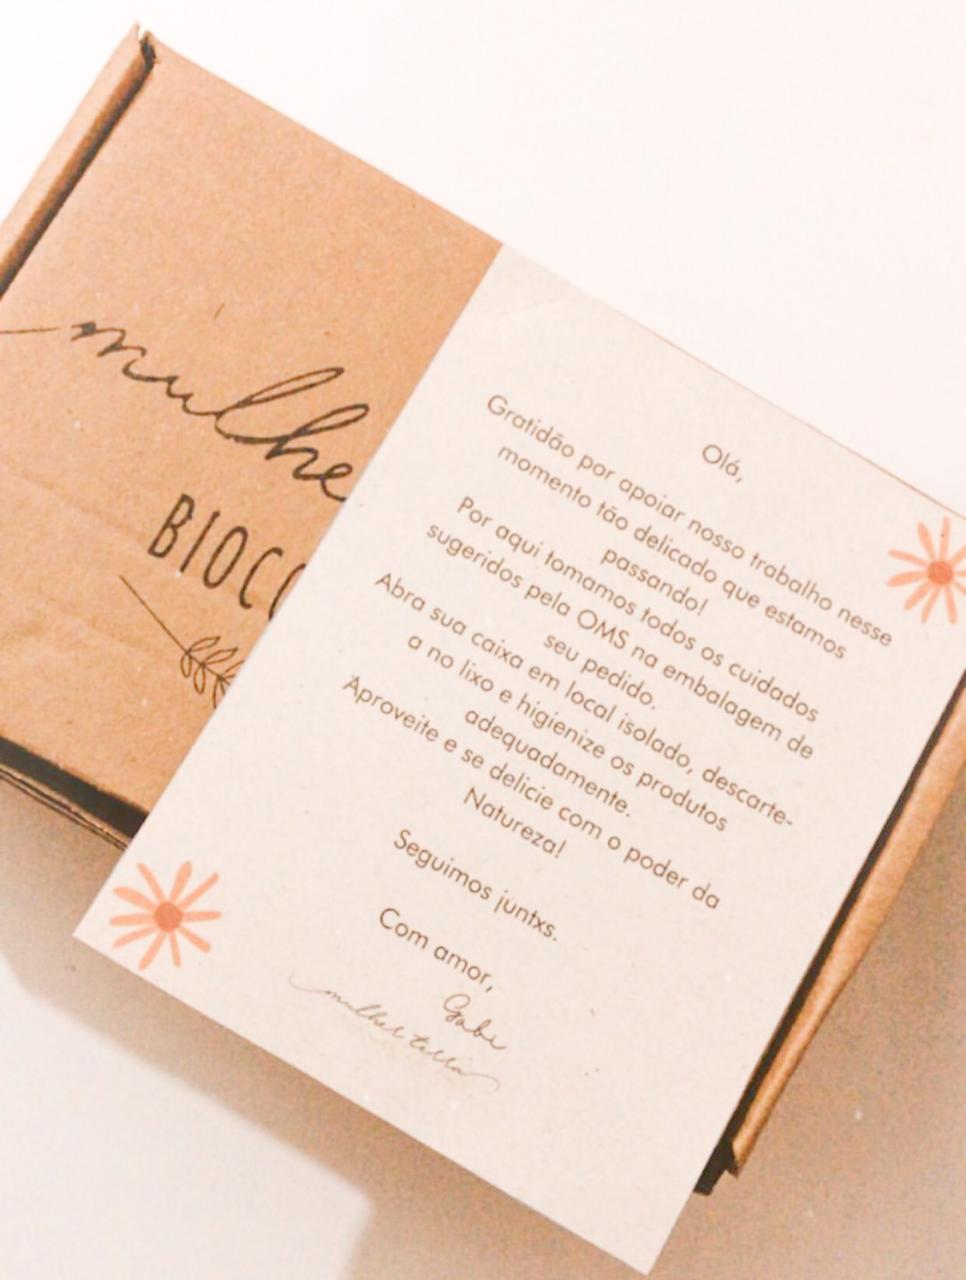 mulhe
BIOCO
Olá,
Gratidão por apoiar nosso trabalho nesse
momento tão delicado que estamos
passando!
Por aqui tomamos todos os cuidados
sugeridos pela OMS na embalagem de
seu pedido.
Abra sua caixa em local isolado, descarte-
a no lixo e higienize os produtos
adequadamente.
Aproveite e se delicie com o poder da
Natureza!
Seguimos juntxs.
Com amor,
Gabi
mulher terra